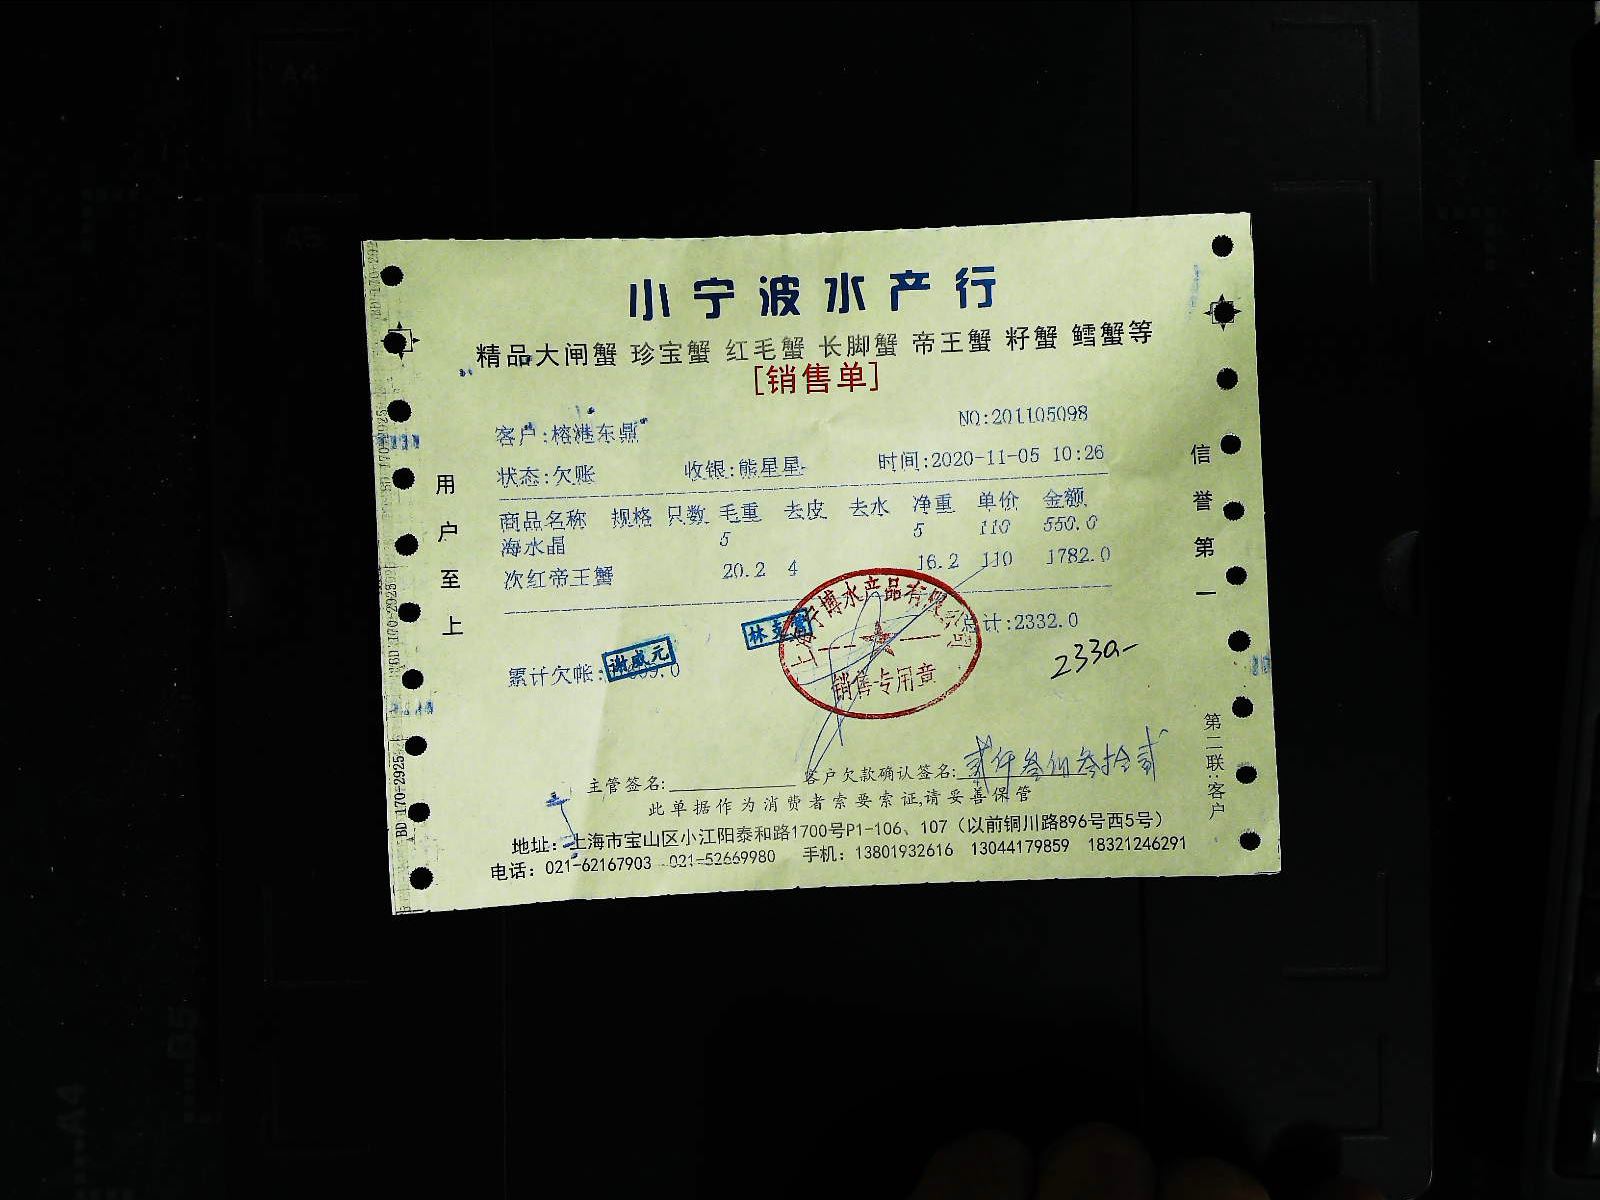 小宁波水产行
精品大闸蟹 珍宝蟹 红毛蟹 长脚蟹 帝王蟹 籽蟹 鳕蟹等
[销售单]
NO:201105098
客户:榕港东鼎
状态:欠账 收银:熊星星 时间:2020-11-05 10:26
商品名称 规格 只数 毛重 去皮 去水 净重 单价 金额
海水晶 5 5 110 550.0
次红帝王蟹 20.2 4 16.2 110 1782.0
总计:2332.0
累计欠帐:
谢威元
上海宁博水产品有限公司
销售专用章
主管签名: 客户欠款确认签名: 贰仟叁佰叁拾贰
此单据作为消费者索要索证,请妥善保管
地址: 上海市宝山区小江阳泰和路1700号P1-106、107（以前铜川路896号西5号）
电话: 021-62167903 021-52669980 手机: 13801932616 13044179859 18321246291
用户至上
信誉第一
第二联:客户
BD 170-2925
A4
A5
B5
A4